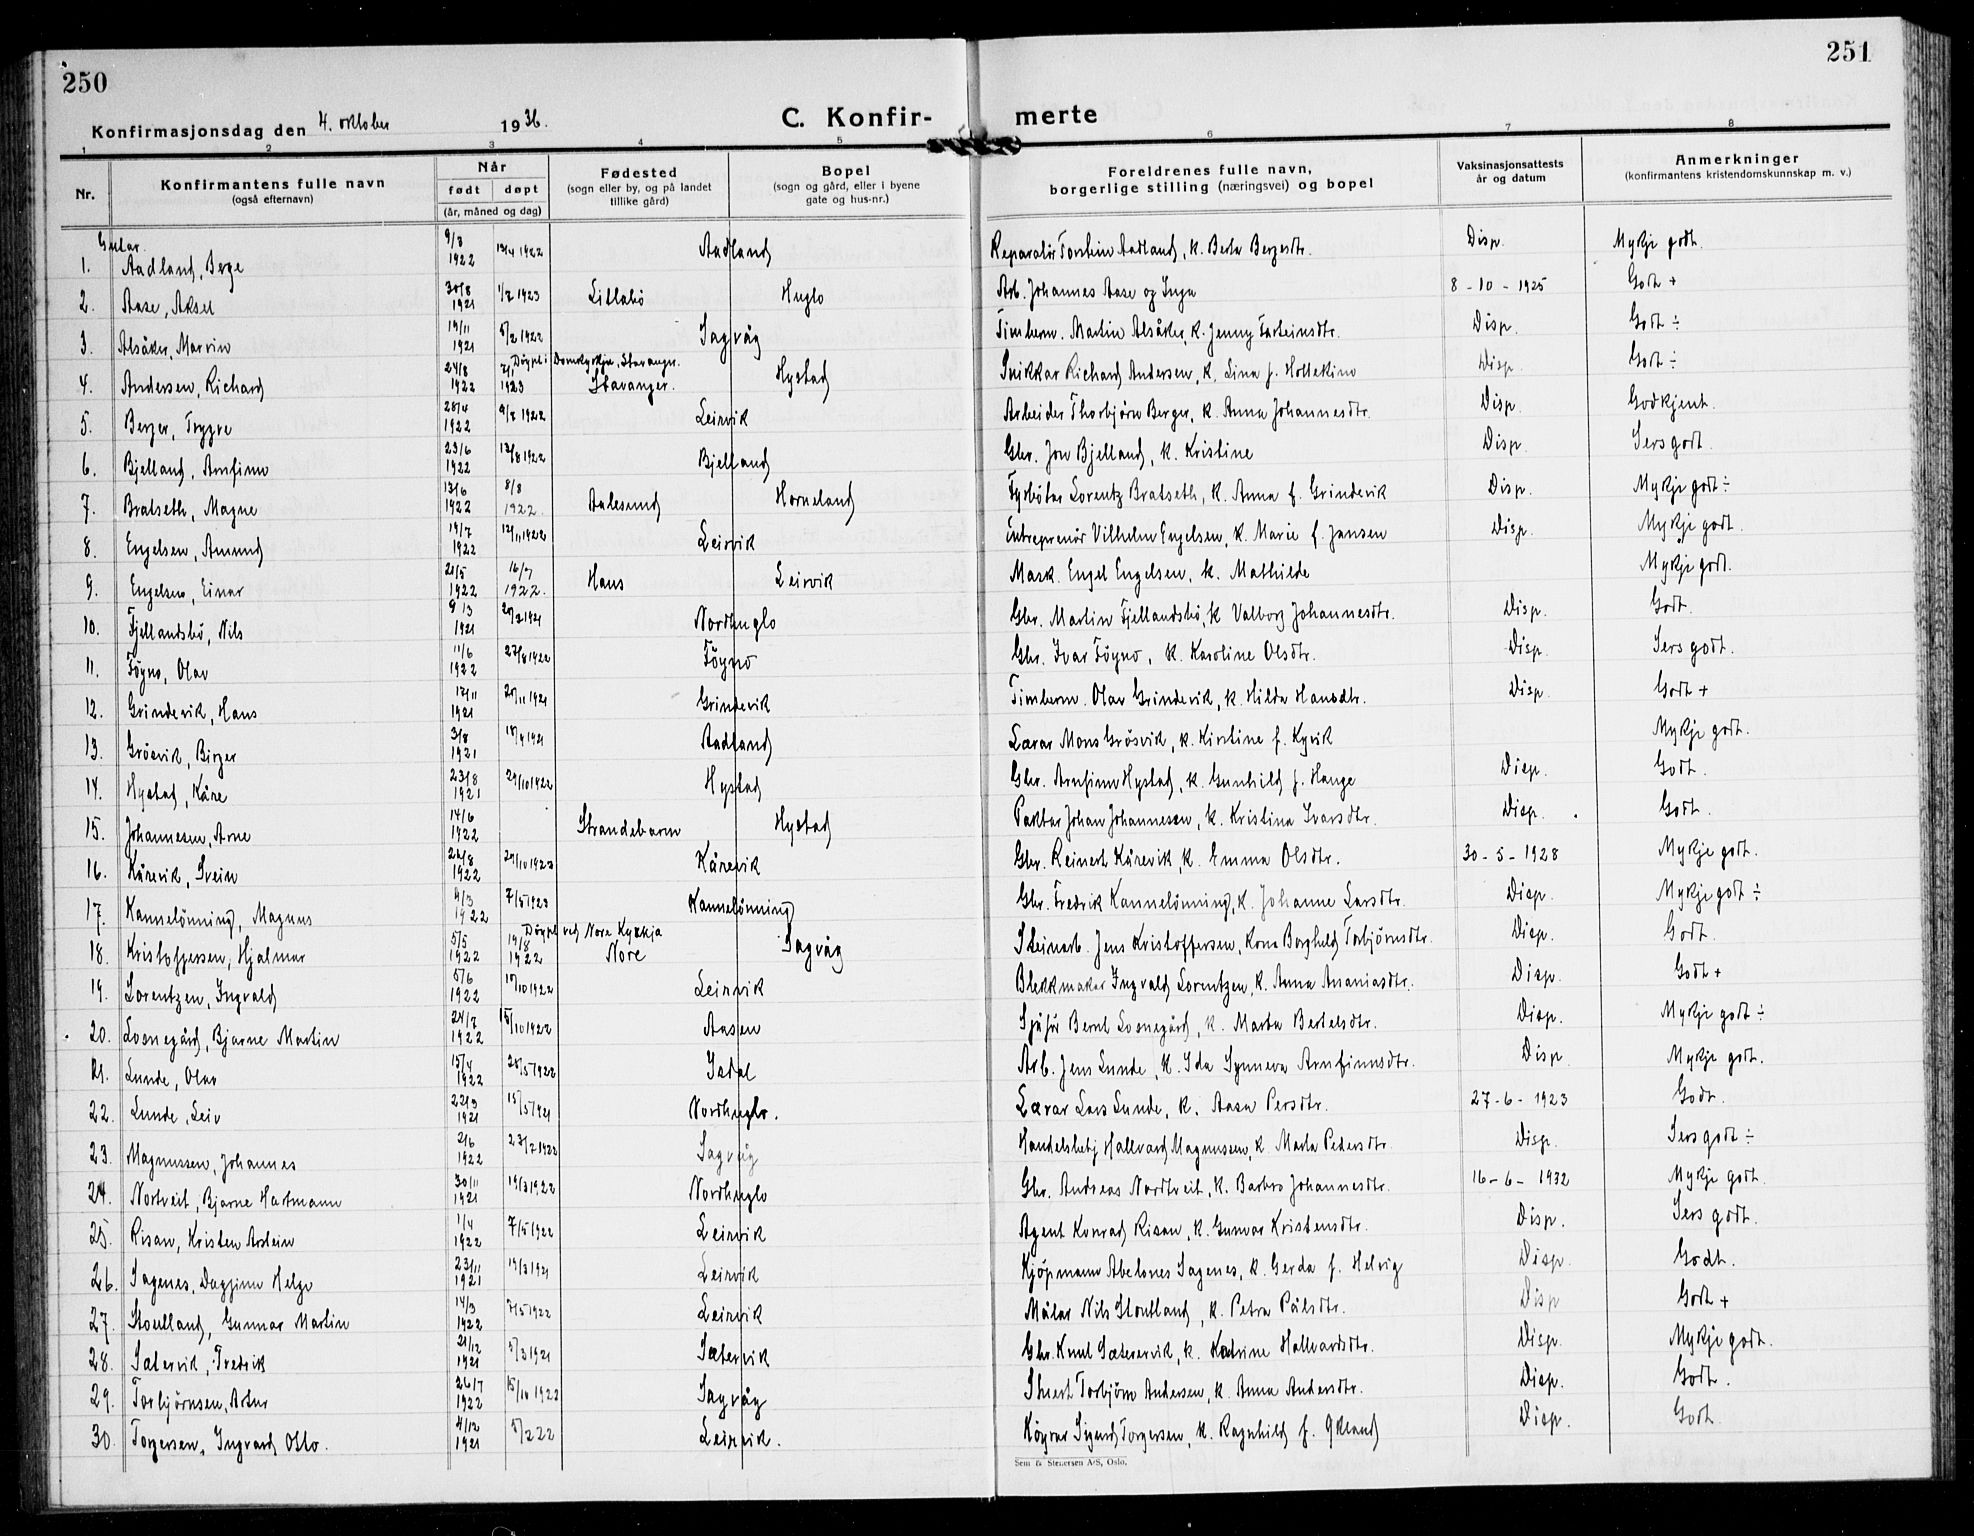 250
251
Konfirmasjonsdag den 4. oktober 1936.
C. Konfirmerte
1 2 3 4 5 6 7 8
Nr. | Konfirmantens fulle navn (også efternavn) | Når født døpt (år, måned og dag) | Fødested (sogn eller by, og på landet tillike gård) | Bopel (sogn og gård, eller i byene gate og hus-nr.) | Foreldrenes fulle navn, borgerlige stilling (næringsvei) og bopel | Vaksinasjonsattests år og datum | Anmerkninger (konfirmantens kristendomskunnskap m. v.)
Gutar.
1. Aadland, Berge 9/3 1922 17/4 1922 Aadland Reparatør Torstein Aadland, k. Berta Bergesdtr. Disp. Mykje godt.
2. Aase, Aksel 30/8 1921 1/2 1923 Litlabö Huglo Arb. Johannes Aase og Inga 8-10-1925 Godt +
3. Alsåker, Marvin 19/11 1921 5/2 1922 Sagvåg Timberm. Martin Alsåker, k. Jenny Tarteinsdtr. Disp. Godt ÷
4. Andersen, Richard 24/8 1922 7/1 1923 Döypt i Domskyrkja, Stavanger. Stavanger. Hystad Snikkar Richard Andersen, k. Lina f. Hollekim Disp. Godt ÷
5. Berger, Trygve 28/4 1922 9/8 1922 Leirvik Arbeider Thorbjörn Berger, k. Anna Johannesdtr. Disp. Godkjent.
6. Bjelland, Arnfinn 23/6 1922 13/8 1922 Bjelland Gbr. Jon Bjelland, k. Kristine Disp. Sers godt.
7. Bratseth, Magne 13/6 1922 8/8 1922 Aalesund Horneland Fyrbötar Lorentz Bratseth, k. Anna f. Grindevik Disp. Mykje godt ÷
8. Engelsen, Amund 19/7 1922 12/11 1922 Leirvik Entreprenör Vilhelm Engelsen, k. Marie f. Jansen Disp. Mykje godt.
9. Engelsen, Einar 21/5 1922 16/7 1922. Haus Leirvik Mask. Engel Engelsen, k. Mathilde Mykje godt.
10. Fjellandsbö, Nils 9/3 1921 Nordhuglo Gbr. Martin Fjellandsbö, k. Valborg Johannesdtr. Disp. Godt.
11. Föyno, Olav 11/6 1922 27/8 1922 Föyno Gbr. Ivar Föyno, k. Karoline Olsdtr. Disp. Sers godt.
12. Grindevik, Hans 17/11 1921 Grindevik Timberm. Olav Grindevik, k. Hilda Hansdtr. Disp. Godt +
13. Grösvik, Birger 3/8 1921 Aadland Lærar Mons Grösvik, k. Kirstine f. Kyvik Mykje godt.
14. Hystad, Kåre 23/8 1921 29/10 1922 Hystad Gbr. Arnfinn Hystad, k. Gunhild f. Hauge Disp. Godt.
15. Johannesen, Arne 14/6 1922 Strandebarm Hystad Paktar Johan Johannesen, k. Kristina Ivarsdtr. Disp. Godt.
16. Kårevik, Svein 1922 29/10 1922 Kårevik Gbr. Reinert Kårevik, k. Emma Olsdtr. 30-5-1928 Mykje godt.
17. Kannelönning, Magnus 4/3 1922 7/5 1923 Kannelönning Gbr. Fredrik Kannelönning, k. Johanne Larsdtr. Disp. Mykje godt ÷
18. Kristoffersen, Hjalmar 5/5 1922 19/8 1922 Döypt ved Nore Kyrkja Nore Sagvåg Steinarb. Jens Kristoffersen, Kona Borghild Torbjörnsdtr. Disp. Godt.
19. Lorentzen, Ingvald 5/6 1922 15/10 1922 Leirvik Blekkmakar Ingvald Lorentzen, k. Anna Ananiasdtr. Disp. Godt +
20. Losnegård, Bjarne Martin 24/7 1922 15/10 1922 Aasen Sjåfør Bernt Losnegård, k. Marta Bertelsdtr. Disp. Mykje godt ÷
21. Lunde, Olav 15/4 1922 28/5 1922 Jadal Arb. Jens Lunde, k. Ida Synneva Arnfinnsdtr. Disp. Mykje godt.
22. Lunde, Leiv 22/3 1921 15/5 1921 Nordhuglo. Lærar Lars Lunde, k. Aasa Persdtr. 27-6-1923 Godt.
23. Magnussen, Johannes 2/6 1922 23/7 1922 Sagvåg Handelsbetj. Hallvard Magnussen, k. Marta Pedersdtr. Disp. Sers godt ÷
24. Nortveit, Bjarne Hartmann 30/11 1921 19/3 1922 Nordhuglo Gbr. Andreas Nordtveit, k. Barbro Johannesdtr. 16-6-1932 Mykje godt.
25. Risan, Kristen Arstein 1/4 1922 7/5 1922 Leirvik Agent Konrad Risan, k. Gunvor Kristensdtr. Disp. Sers godt.
26. Sagenes, Dagfinn Helge 23/11 1921 19/3 1921 Leirvik Kjöpmann Abelones Sagenes, k. Gerda f. Helvig Disp. Godt.
27. Stoutland, Gunnar Martin 14/3 1922 7/5 1922 Leirvik Målar Nils Stoutland, k. Petra Pålsdtr. Disp Godt +
28. Sætervik, Fredrik 21/12 1921 5/3 1921 Sætervik Gbr. Knut Sæterervik, k. Katrine Hallvardsdtr. Disp. Mykje godt.
29. Torbjörnsen, Artur 26/7 1922 15/10 1922 Sagvåg Torbjörn Andersen, k. Anna Andersdtr. Disp. Godt.
30. Torgersen, Ingvard Otto. 4/12 1921 5/2 22 Leirvik. Sigurd Torgersen, k. Ragnhild f. Økland Disp. Godt.
Sem & Stenersen A/S, Oslo.